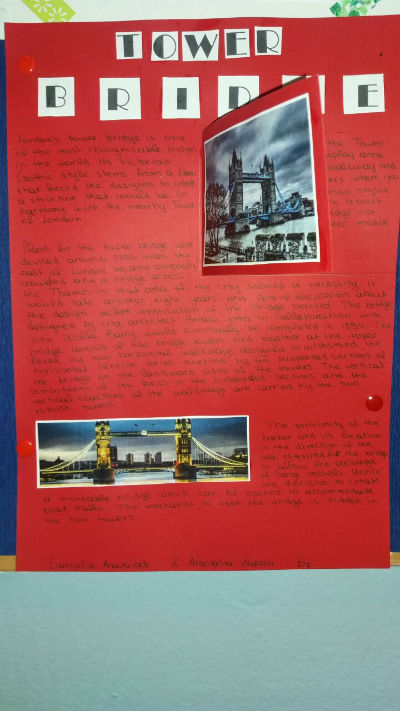 TOWER
BRIDGE
London's tower bridge is one
of the most recognizable bridges
in the world. Its Victorian
Gothic style stems from a law
that forced the designers to create
a structure that would be in
harmony with the nearby Tower
of London.
the Tower
display area
walkway and
where you
engine
about
other media
Plans for the tower bridge were
devised around 1876 when the
east of London became extremely
crowded and a bridge across
the Thames in that area of the city seemed a necessity. It
would take another eight years and lots of discussions about
the design before construction of the bridge started. The bridge
designed by city architect Horace Jones in collaboration with
John Wolfe Barry would eventually be completed in 1894. The
bridge consists of two bridge towers tied together at the upper
level by two horizontal walkways, designed to withstand the
horizontal tension forces exerted by the suspended sections of
the bridge on the landward sides of the towers. The vertical
component of the forces in the suspended sections and the
vertical reactions of the walkways are carried by the two
robust towers.
The proximity of the
harbor and its location
in the direction of the
sea required for the bridge
to allow the passage
of large vessels. Hence
the decision to create
a moveable bridge which can be opened to accommodate
boat traffic. The mechanism to open the bridge is hidden in
the two towers.
& Anastasia